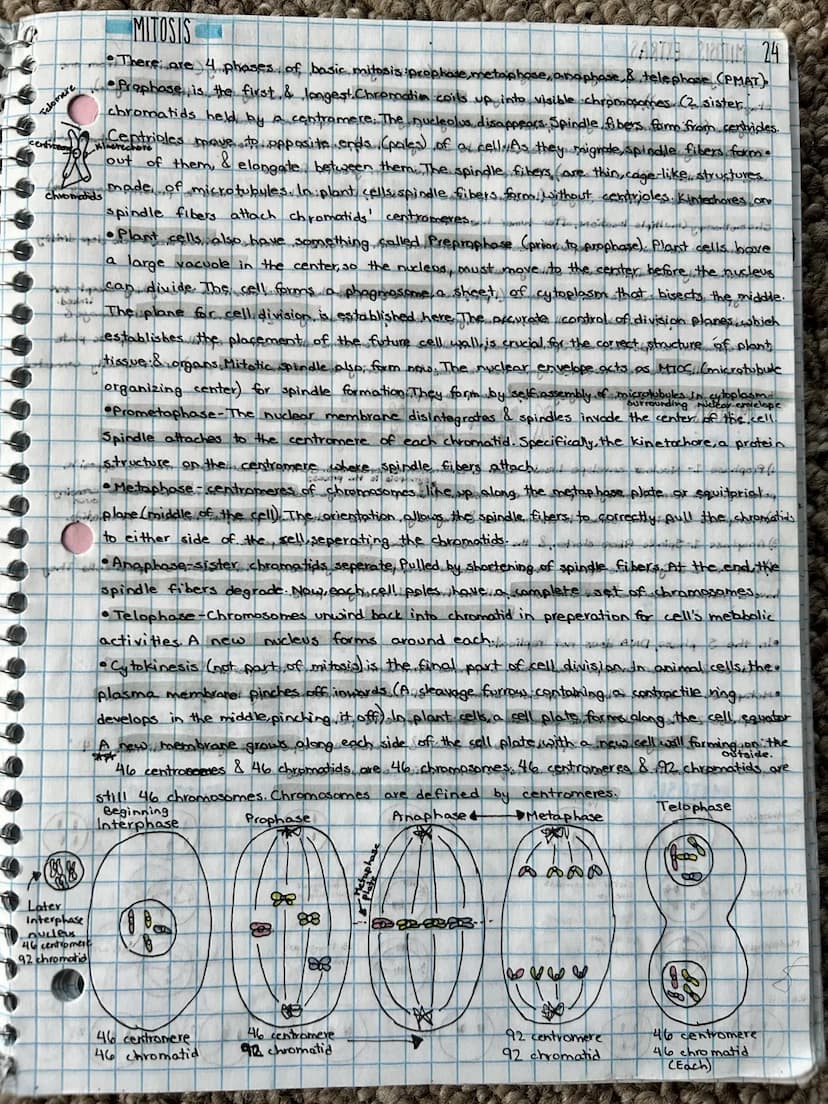 MITOSIS
24
• There are 4 phases of basic mitosis: prophase, metaphase, anaphase, & telephase (PMAT).
• Prophase is the first & longest. Chromatin coils up into visible chromosomes (2 sister
chromatids held by a centromere. The nucleolus disappears. Spindle fibers form from centrioles.
Centrioles move to opposite ends (poles) of a cell. As they migrate, spindle fibers form
out of them, & elongate between them. The spindle fibers, are thin, cage-like structures
made of microtubules. In plant cells, spindle fibers form without centrioles. Kintechores on
spindle fibers attach chromatids' centromeres.
Telomere
centromere
Kinetochore
chromatids
• Plant cells also have something called Preprophase (prior to prophase). Plant cells have
a large vacuole in the center, so the nucleus must move to the center before the nucleus
can divide. The cell forms a phagmosome, a sheet of cytoplasm that bisects the middle.
The plane for cell division is established here. The accurate control of division planes, which
establishes the placement of the future cell wall, is crucial for the correct structure of plant
tissue & organs. Mitotic spindle also form now. The nuclear envelope acts as MTOC (microtubule
organizing center) for spindle formation. They form by self-assembly of microtubules in cytoplasm
surrounding nuclear envelope
• Prometaphase - The nuclear membrane disintegrates & spindles invade the center of the cell.
Spindle attaches to the centromere of each chromatid. Specifically, the kinetochore, a protein
structure on the centromere where spindle fibers attach.
• Metaphase - centromeres of chromosomes line up along the metaphase plate or equitorial
plane (middle of the cell). The orientation allows the spindle fibers to correctly pull the chromatids
to either side of the cell, seperating the chromatids.
• Anaphase - sister chromatids seperate, Pulled by shortening of spindle fibers. At the end, the
spindle fibers degrade. Now, each cell poles have a complete set of chromosomes.
• Telophase - Chromosomes unwind back into chromatid in preperation for cell's metbolic
activities. A new nucleus forms around each.
• Cytokinesis (not part of mitosis) is the final part of cell division. In animal cells, the
plasma membrane pinches off inwards (A cleavage furrow containing a contractile ring
develops in the middle, pinching it off) In plant cells, a cell plate forms along the cell equator
A new membrane grows along each side of the cell plate, with a new cell wall forming on the
outside.
46 centromeres & 46 chromatids are 46 chromosomes. 46 centromeres & 92 chromatids are
still 46 chromosomes. Chromosomes are defined by centromeres.
Beginning
Interphase
Prophase
Anaphase
Metaphase
Telophase
Metaphase
plate
Later
Interphase
nucleus
46 centromere
92 chromatid
46 centromere
46 chromatid
46 centromere
92 chromatid
92 centromere
92 chromatid
46 centromere
46 chromatid
(Each)